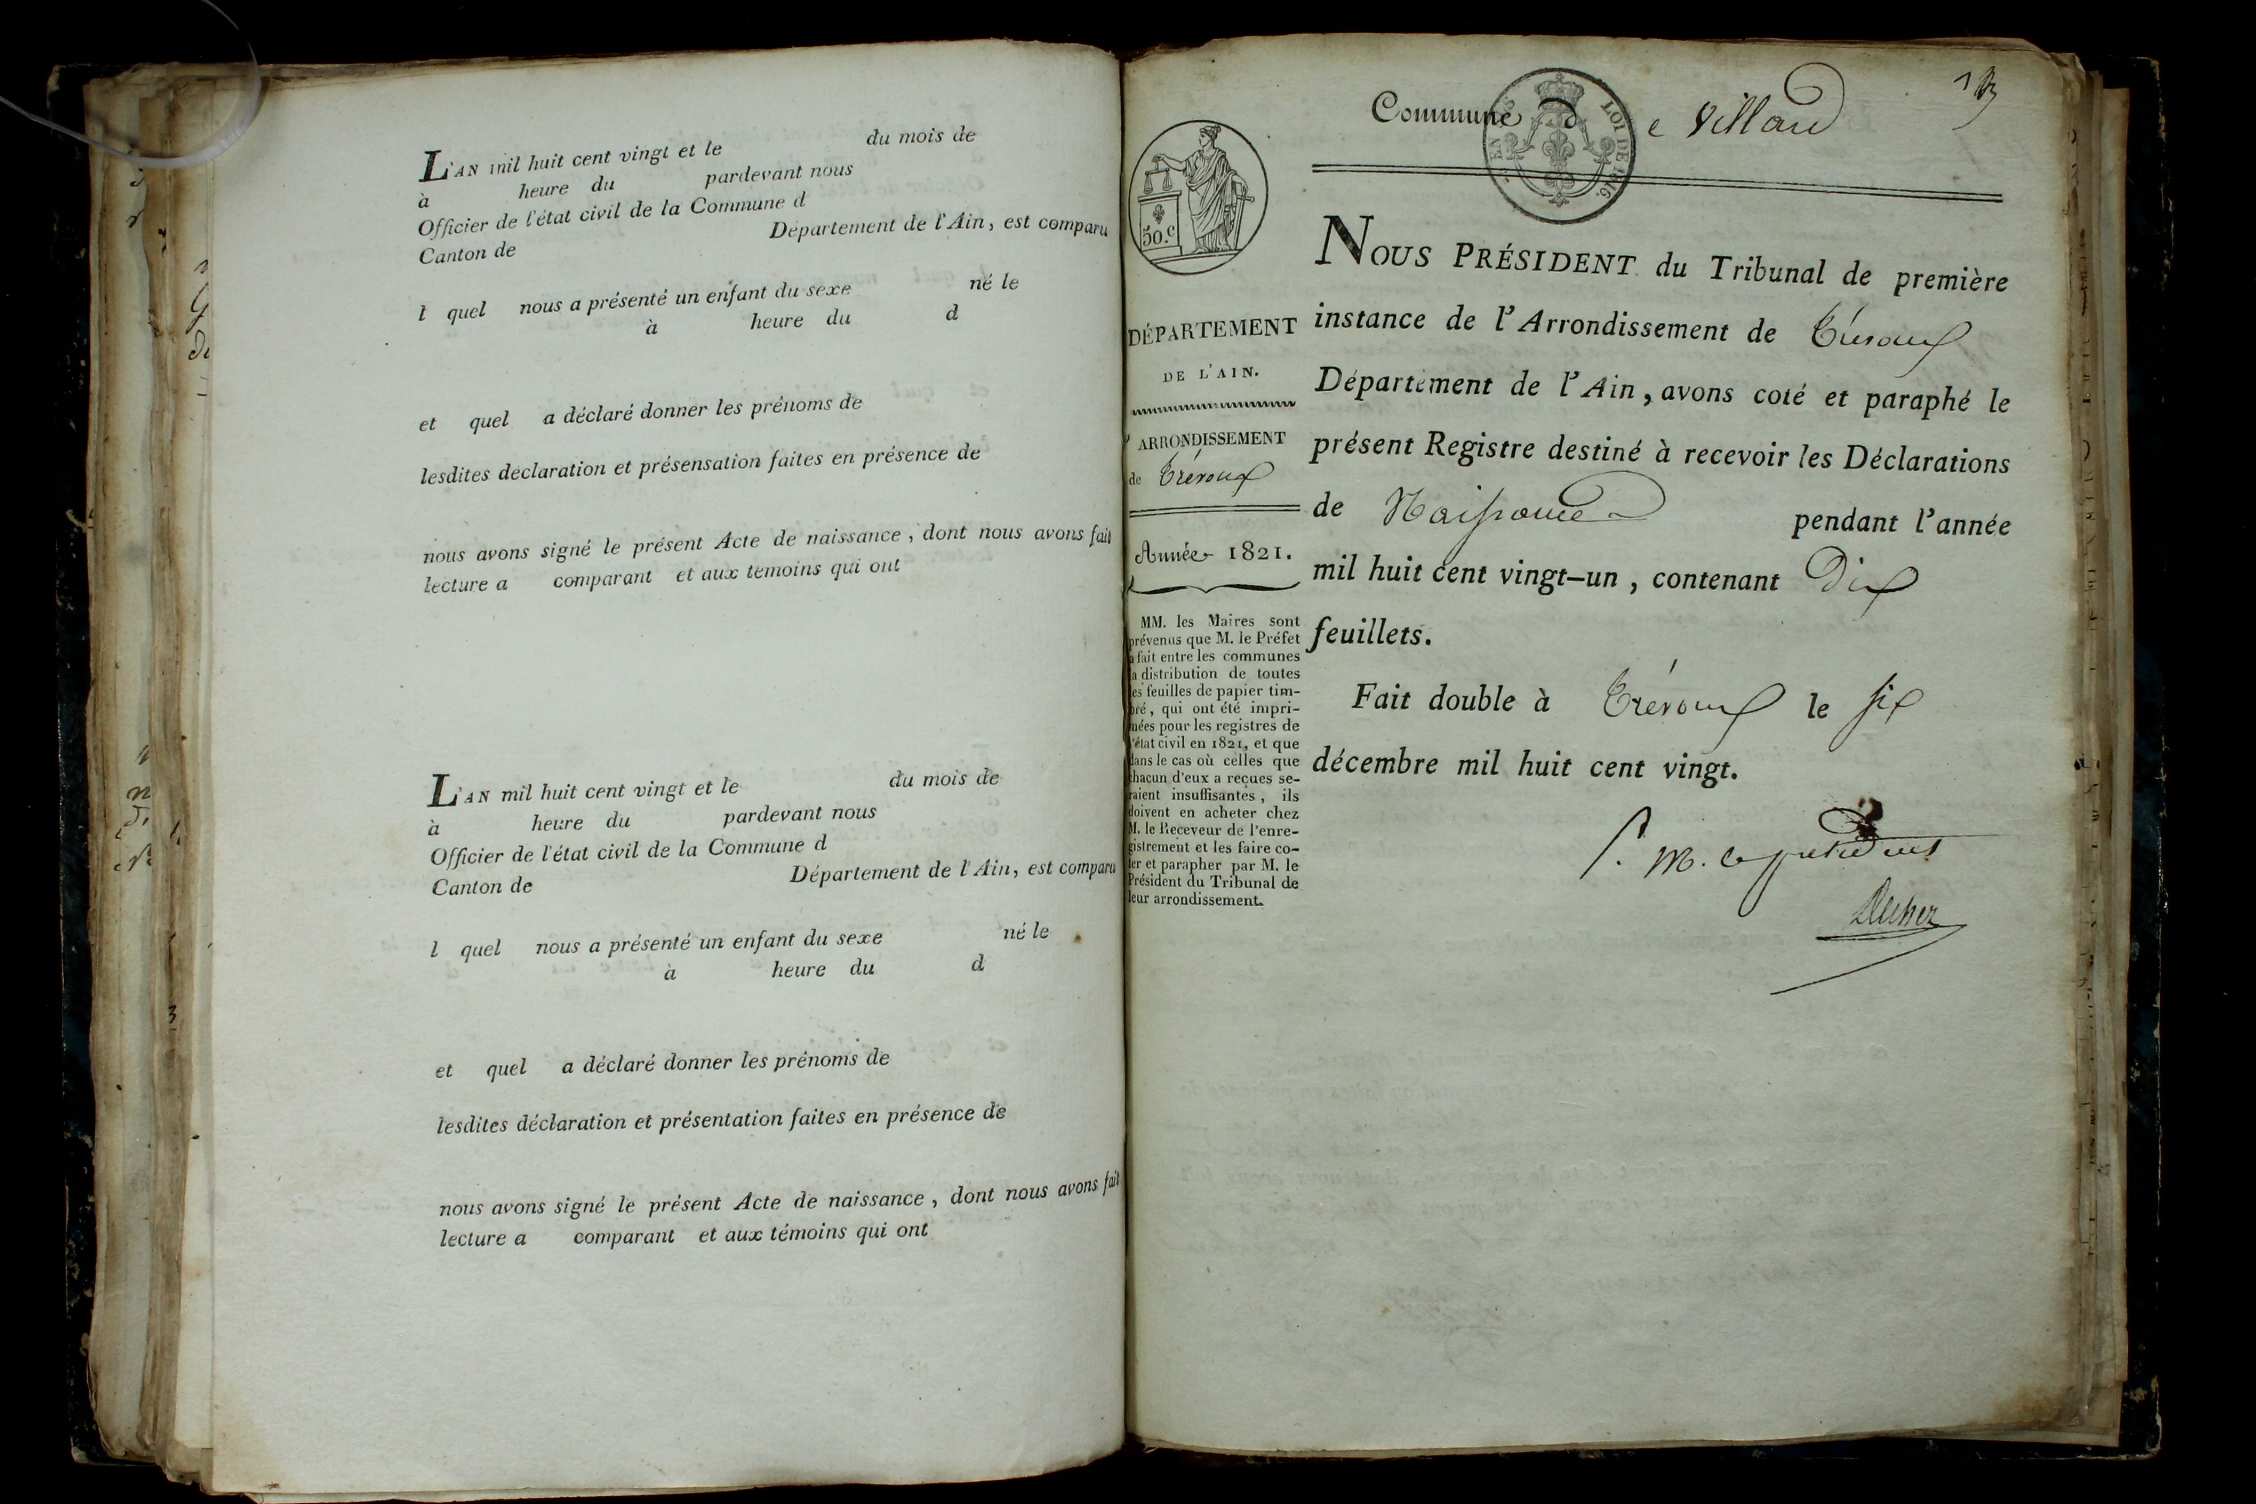 L'AN mil huit cent vingt et le du mois de
à heure du pardevant nous
Officier de l'état civil de la Commune d
Canton de Département de l'Ain, est comparu
l quel nous a présenté un enfant du sexe né le
à heure du d
et quel a déclaré donner les prénoms de
lesdites declaration et présensation faites en présence de
nous avons signé le présent Acte de naissance, dont nous avons fait
lecture a comparant et aux témoins qui ont
L'AN mil huit cent vingt et le du mois de
à heure du pardevant nous
Officier de l'état civil de la Commune d
Canton de Département de l'Ain, est comparu
l quel nous a présenté un enfant du sexe né le
à heure du d
et quel a déclaré donner les prénoms de
lesdites déclaration et présentation faites en présence de
nous avons signé le présent Acte de naissance, dont nous avons fait
lecture a comparant et aux témoins qui ont
Commune de
LOI DE 1816.
50.c
DÉPARTEMENT
DE L'AIN.
ARRONDISSEMENT
de Trévoux
Année 1821.
MM. les Maires sont
prévenus que M. le Préfet
a fait entre les communes
la distribution de toutes
les feuilles de papier tim-
bré, qui ont été impri-
mées pour les registres de
l'état civil en 1821, et que
dans le cas où celles que
chacun d'eux a reçues se-
raient insuffisantes, ils
doivent en acheter chez
M. le Receveur de l'enre-
gistrement et les faire co-
ter et parapher par M. le
Président du Tribunal de
leur arrondissement.
NOUS PRÉSIDENT du Tribunal de première
instance de l'Arrondissement de Trévoux
Département de l'Ain, avons coté et paraphé le
présent Registre destiné à recevoir les Déclarations
de Naissance pendant l'année
mil huit cent vingt-un, contenant Dix
feuillets.
Fait double à Trévoux le six
décembre mil huit cent vingt.
P. M. le président